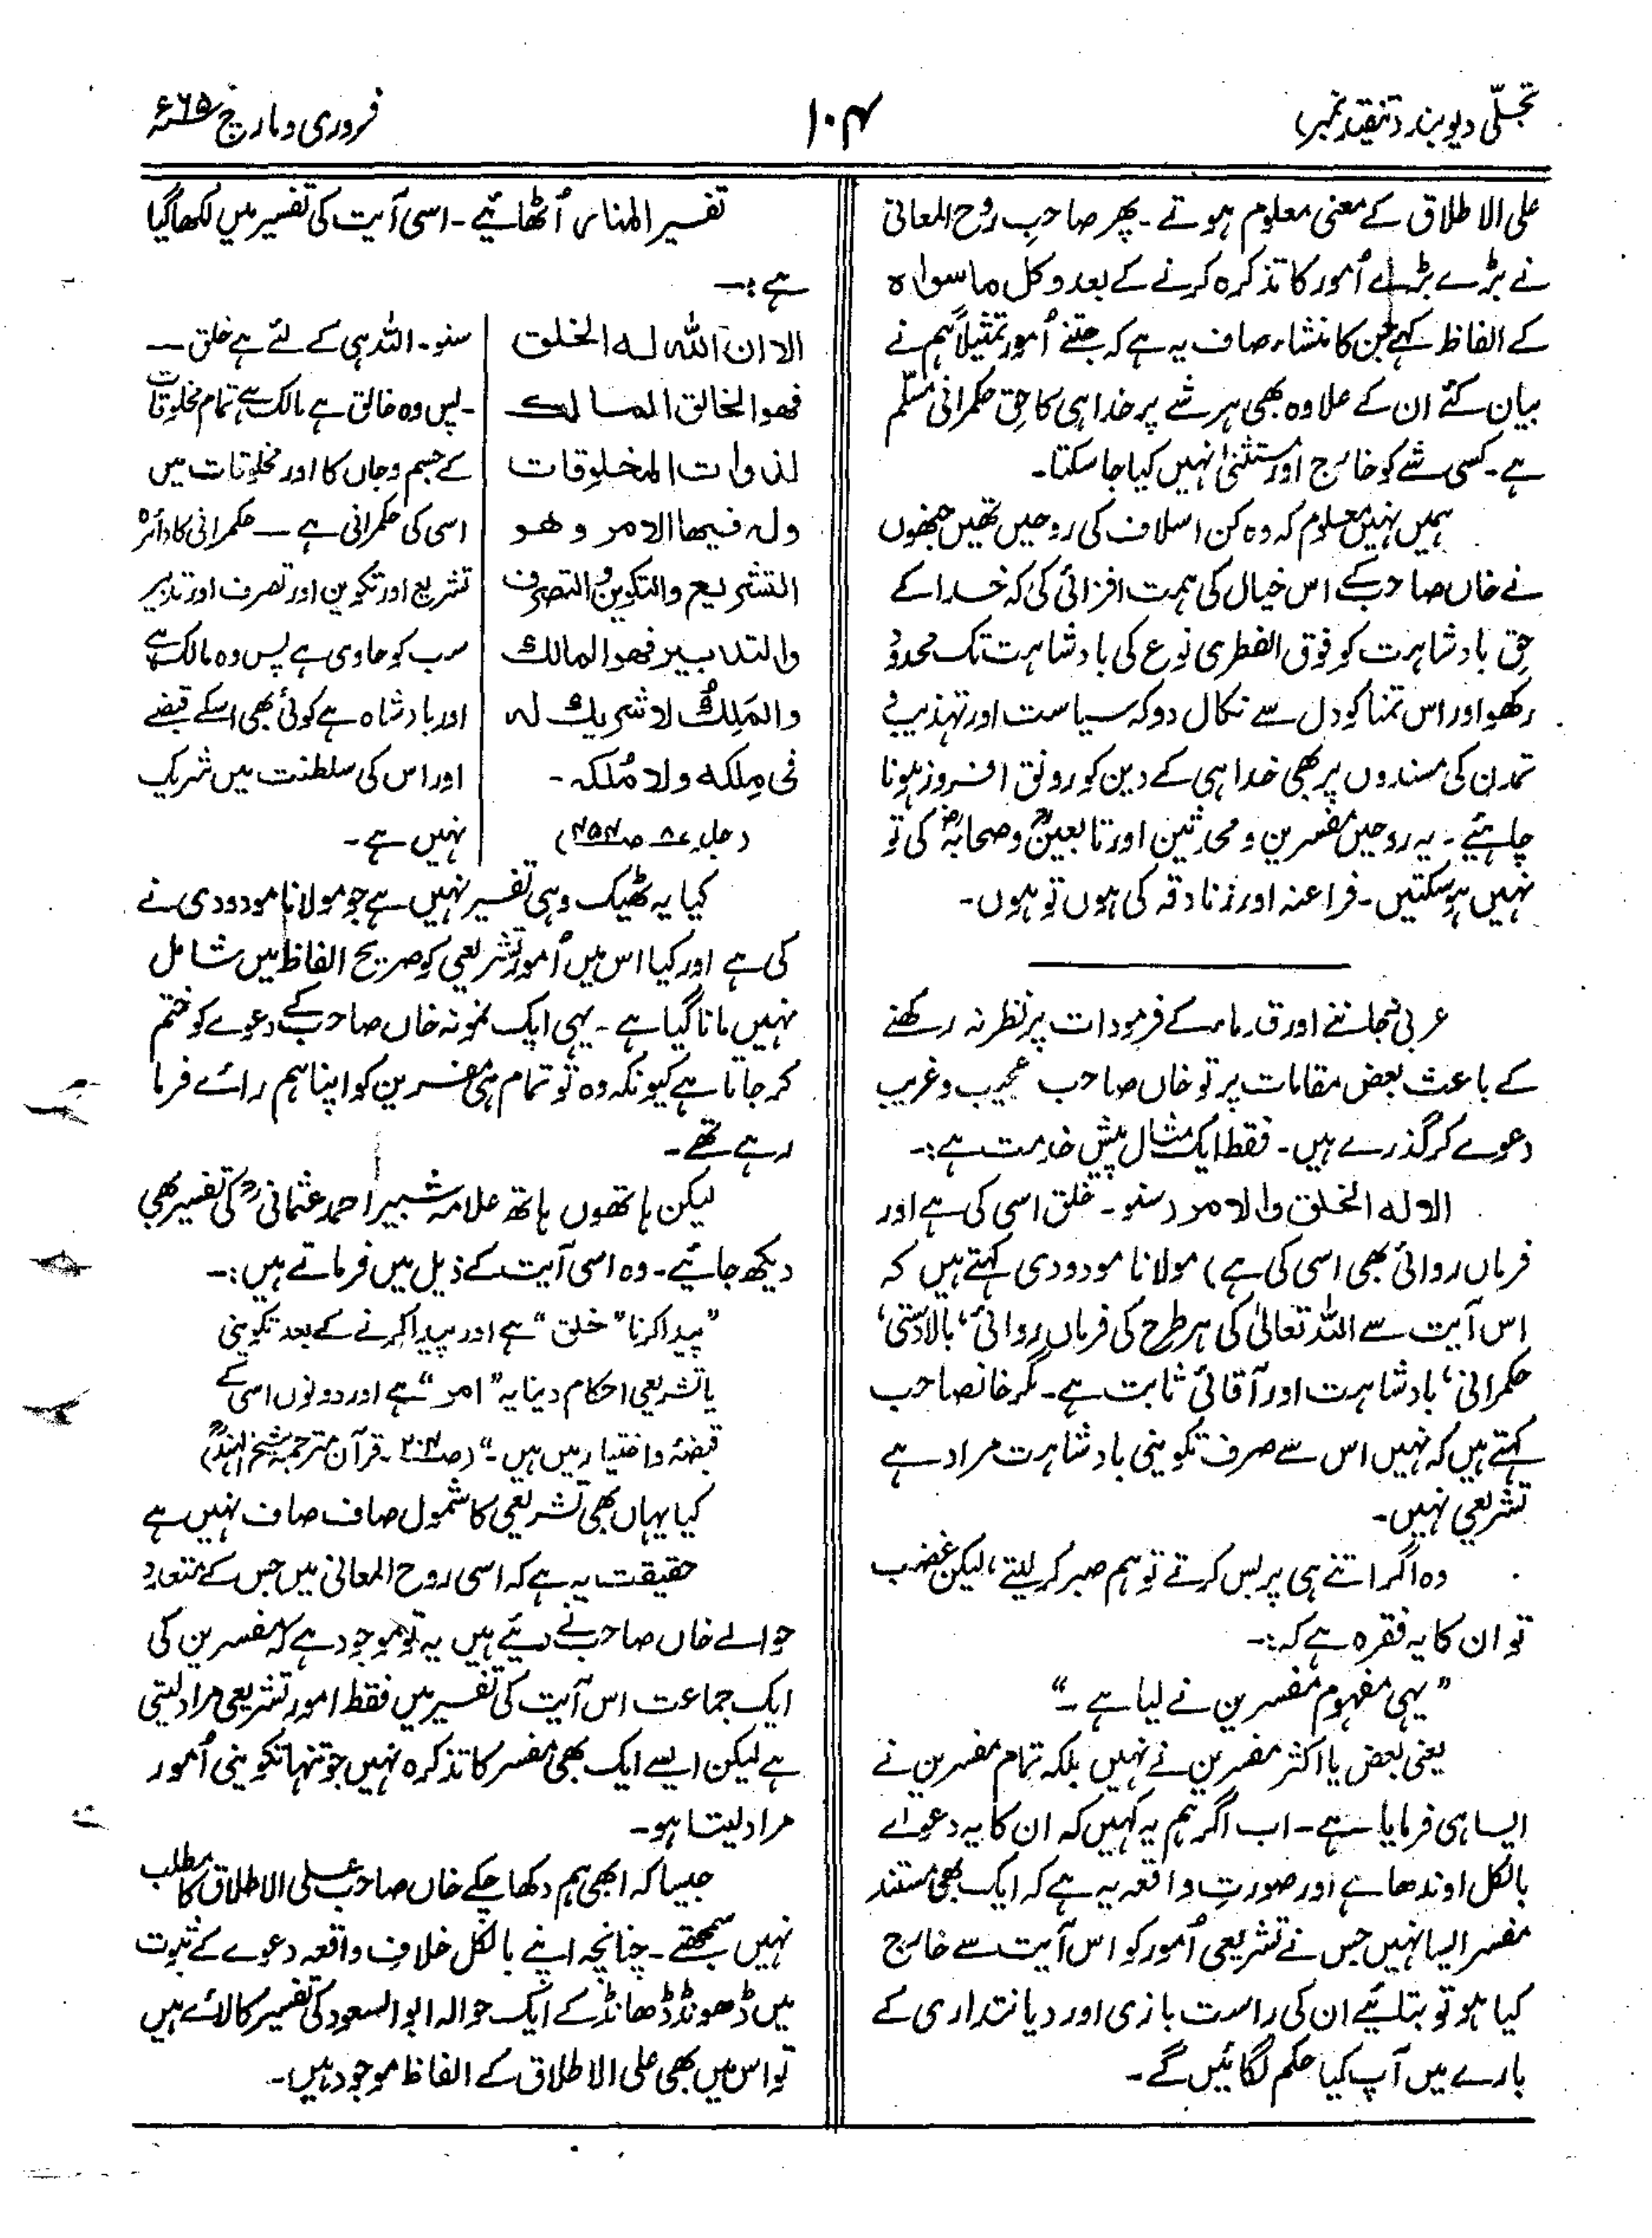 تجلّی دیوبند (تنقید نمبر)
۱۰۴
فروری و مارچ ۶۵ء
علی الاطلاق کے معنی معلوم ہوتے۔ پھر صاحبِ روح المعانی
نے بڑے بڑے اُمور کا تذکرہ کرنے کے بعد وکل ماسواہ
کے الفاظ کہے جن کا منشاء صاف یہ ہے کہ جتنے اُمور تمثیلاً ہم نے
بیان کئے ان کے علاوہ بھی ہر شے پر خدا ہی کا حقِ حکمرانی مسلّم
ہے۔ کسی شے کو خارج اور مستثنیٰ نہیں کیا جا سکتا۔
ہمیں نہیں معلوم کہ وہ کن اسلاف کی روحیں تھیں جنھوں
نے خاں صاحب کے اس خیال کی ہمت افزائی کی کہ خدا کے
حقِ بادشاہت کو فوق الفطری نوع کی بادشاہت تک محدود
رکھو اور اس تمنا کو دل سے نکال دو کہ سیاست اور تہذیب و
تمدن کی مسندوں پر بھی خدا ہی کے دین کو رونق افروز ہونا
چاہئیے۔ یہ روحیں مفسرین و محدثین اور تابعینؒ و صحابہؓ کی تو
نہیں ہوسکتیں۔ فراعنہ اور زنادقہ کی ہوں تو ہوں۔
عربی نجاننے اور قدماء کے فرمودات پر نظر نہ رکھنے
کے باعث بعض مقامات پر تو خاں صاحب عجیب و غریب
دعوے کر گذرے ہیں۔ فقط ایک مثال پیش خدمت ہے:۔
الا لہ الخلق والامر (سنو۔ خلق اسی کی ہے اور
فرماں روائی بھی اسی کی ہے) مولانا مودودی کہتے ہیں کہ
اس آیت سے اللہ تعالیٰ کی ہر طرح کی فرماں روائی، بالادستی،
حکمرانی، بادشاہت اور آقائی ثابت ہے۔ مگر خانصاحب
کہتے ہیں کہ نہیں اس سے صرف تکوینی بادشاہت مراد ہے
تشریعی نہیں۔
وہ اگر اتنے ہی پر بس کرتے تو ہم صبر کر لیتے، لیکن غضب
تو ان کا یہ فقرہ ہے کہ:۔
”یہی مفہوم مفسرین نے لیا ہے۔“
یعنی بعض یا اکثر مفسرین نے نہیں بلکہ تمام مفسرین نے
ایسا ہی فرمایا ہے۔ اب اگر ہم یہ کہیں کہ ان کا یہ دعواے
بالکل اوندھا ہے اور صورتِ واقعہ یہ ہے کہ ایک بھی مستند
مفسر ایسا نہیں جس نے تشریعی اُمور کو اس آیت سے خارج
کیا ہو تو بتلئیے ان کی راست بازی اور دیانتداری کے
بارے میں آپ کیا حکم لگائیں گے۔
تفسیر المنار اُٹھائیے۔ اسی آیت کی تفسیر میں لکھا گیا
ہے:۔
الا ان اللہ لہ الخلق
فھو الخالق المالک
لذوات المخلوقات
ولہ فیھا الامر وھو
التشریع والتکوین والتصرف
والتدبیر فھو المالک
والمَلِکُ لا شریک لہ
فی مِلکہ ولا مُلکہ۔
(جلد ۸ ص ۴۵۴)
سنو۔ اللہ ہی کے لئے ہے خلق ــــ
۔پس وہ خالق ہے مالک ہے تمام مخلوقات
کے جسم و جاں کا اور مخلوقات میں
اسی کی حکمرانی ہے ــ حکمرانی کا دائرہ
تشریع اور تکوین اور تصرف اور تدبیر
سب کو حاوی ہے پس وہ مالک ہے
اور بادشاہ ہے کوئی بھی اسکے قبضے
اور اس کی سلطنت میں شریک
نہیں ہے۔
کیا یہ ٹھیک وہی تفسیر نہیں ہے جو مولانا مودودی نے
کی ہے اور کیا اس میں اُمورِ تشریعی کو صریح الفاظ میں شامل
نہیں مانا گیا ہے۔ یہی ایک نمونہ خاں صاحب کے دعوے کو ختم
کر جاتا ہے کیونکہ وہ تو تمام ہی مفسرین کو اپنا ہم رائے فرما
رہے تھے۔
لیکن ہاتھوں ہاتھ علامہ شبیر احمد عثمانیؒ کی تفسیر بھی
دیکھ جائیے۔ وہ اسی آیت کے ذیل میں فرماتے ہیں:۔
”پیدا کرنا ”خلق“ ہے اور پیدا کرنے کے بعد تکوینی
یا تشریعی احکام دینا یہ ”امر“ ہے اور دونوں اسی کے
قبضۂ و اختیار میں ہیں۔“ (ص۲۰۴۔ قرآن مترجمہ شیخ الہندؒ)
کیا یہاں بھی تشریعی کا شمول صاف صاف نہیں ہے
حقیقت یہ ہے کہ اسی روح المعانی میں جس کے متعدد
حوالے خاں صاحب نے دئیے ہیں یہ تو موجود ہے کہ مفسرین کی
ایک جماعت اس آیت کی تفسیر میں فقط امور تشریعی مراد لیتی
ہے لیکن ایسے ایک بھی مفسر کا تذکرہ نہیں جو تنہا تکوینی اُمور
مراد لیتا ہو۔
جیسا کہ ابھی ہم دکھا چکے خاں صاحب علی الاطلاق کا مطلب
نہیں سمجھتے۔ چنانچہ اپنے بالکل خلافِ واقعہ دعوے کے ثبوت
میں ڈھونڈ ڈھانڈ کے ایک حوالہ ابو السعود کی تفسیر کا لائے ہیں
تو اس میں بھی علی الاطلاق کے الفاظ موجود ہیں۔